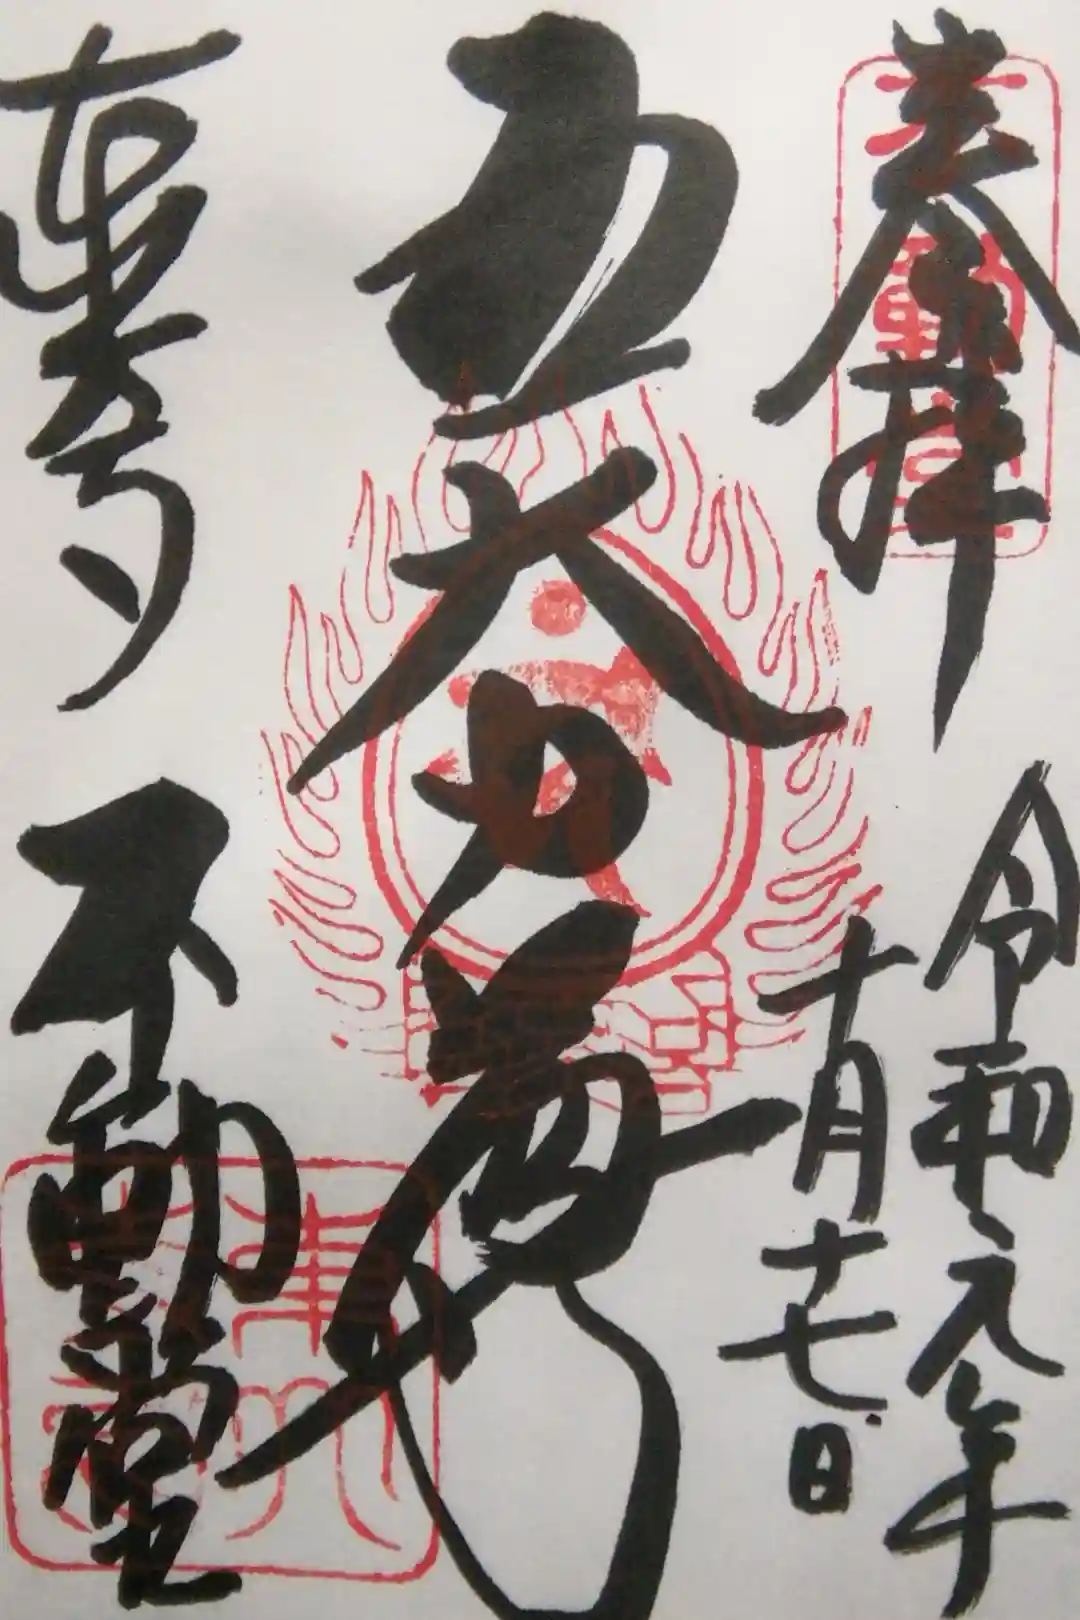 奉拝
令和元年
十月十七日
五大力
東寺 不動堂